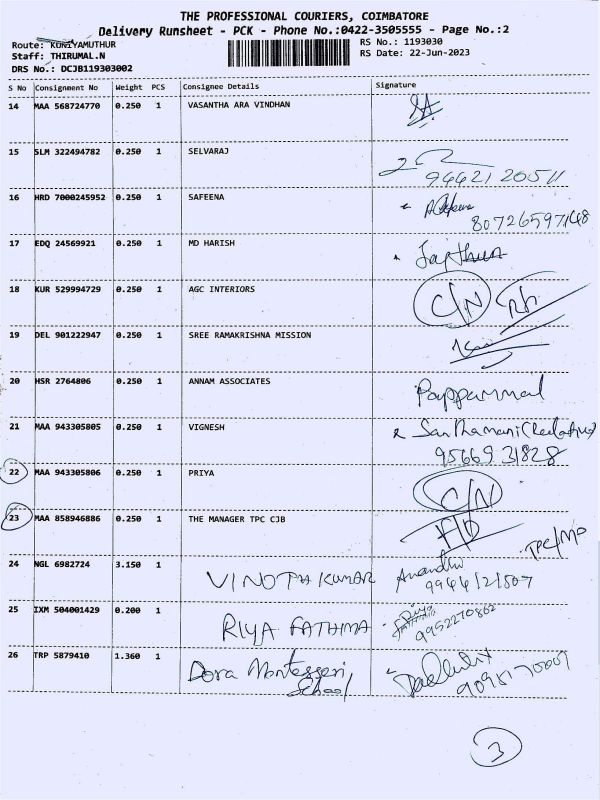 THE PROFESSIONAL COURIERS, COIMBATORE
Delivery Runsheet - PCK - Phone No.:0422-3505555 - Page No.:2
Route: KUNIYAMUTHUR
RS No.: 1193030
Staff: THIRUMAL.N
RS Date: 22-Jun-2023
DRS No.: DCJB119303002
S No Consignment No Weight PCS Consignee Details Signature
14 MAA 568724770 0.250 1 VASANTHA ARA VINDHAN
15 SLM 322494782 0.250 1 SELVARAJ
94421 20511
16 HRD 7000245952 0.250 1 SAFEENA
80726597148
17 EDQ 24569921 0.250 1 MD HARISH
18 KUR 529994729 0.250 1 AGC INTERIORS C/N
19 DEL 901222947 0.250 1 SREE RAMAKRISHNA MISSION
20 HSR 2764806 0.250 1 ANNAM ASSOCIATES Pappammal
21 MAA 943305805 0.250 1 VIGNESH Santhamani (Relative)
95669 31828
22 MAA 943305806 0.250 1 PRIYA C/N
23 MAA 858946886 0.250 1 THE MANAGER TPC CJB
24 NGL 6982724 3.150 1 VINOTH KUMAR Anandhi
9944121507
25 IXM 504001429 0.200 1 RIYA FATHIMA
9952270862
26 TRP 5879410 1.360 1 Dora Montesseri
School
3